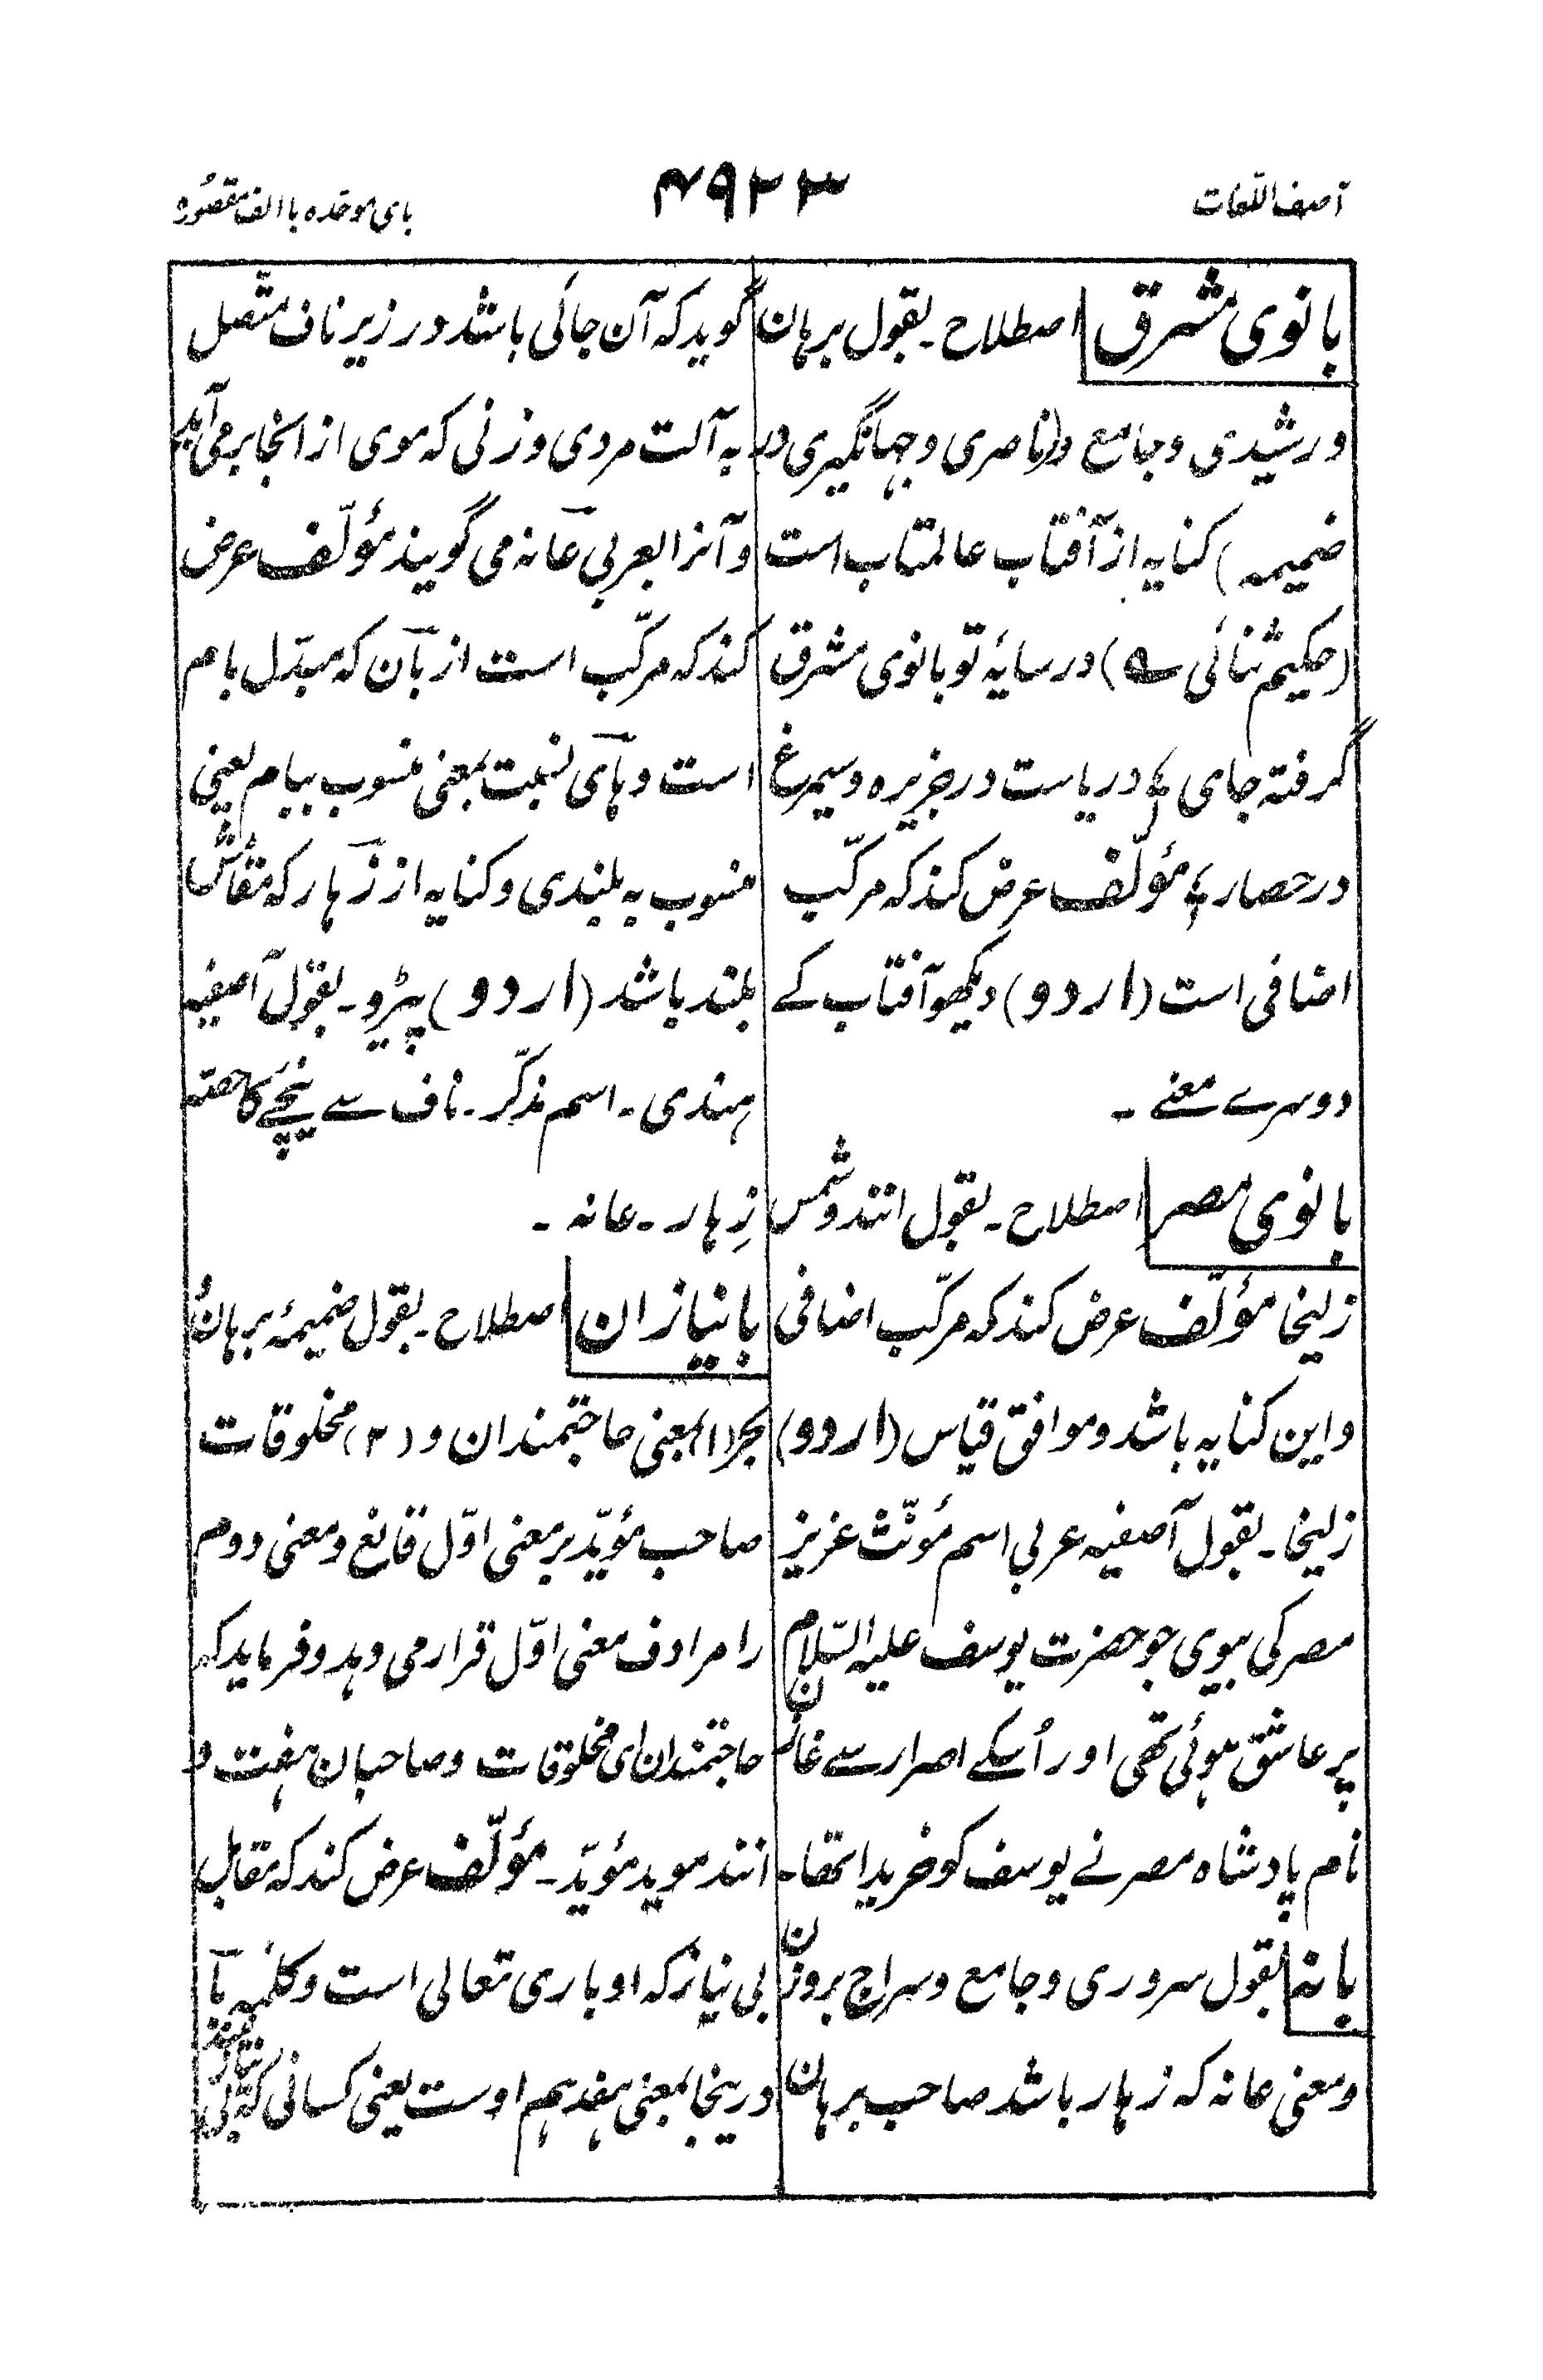 آصف اللّغات
۴۹۲۳
بای موحّده با الف مقصُوره
بانوی مشرق اصطلاح۔ بقول برہان
و رشیدی و جامع و (ناصری و جہانگیری در
ضمیمہ) کنایہ از آفتاب عالمتاب است
(حکیم ثنائی ؎) در سایۂ تو بانوی مشرق
گرفتہ جای ؛ دریاست در جزیرہ و سیمرغ
در حصار ؛ مؤلّف عرض کند کہ مرکّب
اضافی است (اردو) دیکھو آفتاب کے
دوسرے معنے ۔
بانوی مصر اصطلاح۔ بقول انند و شمس
زلیخا مؤلّف عرض کند کہ مرکّب اضافی
و این کنایہ باشد و موافق قیاس (اردو)
زلیخا۔ بقول آصفیہ عربی اسم مؤنّث عزیز
مصر کی بیوی جو حضرت یوسف علیہ السّلام
پر عاشق ہوئی تھی اور اُسکے اصرار سے
نام پادشاہ مصر نے یوسف کو خریدا تھا۔
بانہ بقول سروری و جامع و سراج بروزن
و معنی عانہ کہ زہار باشد صاحب برہان
گوید کہ آن جائی باشد در زیر ناف متّصل
بہ آلت مردی و زنی کہ موی از انجا برمی آید
و آنرا بعربی عانہ می گویند مؤلّف عرض
کند کہ مرکّب است از بان کہ مبدّل بام
است و ہای نسبت بمعنی منسوب ببام یعنی
منسوب بہ بلندی و کنایہ از زہار کہ مقامش
بلند باشد (اردو) پیڑو۔ بقول آصفیہ
ہندی۔ اسم مذکّر۔ ناف سے نیچے کا حصّہ
زِہار۔ عانہ ۔
بانیازان اصطلاح۔ بقول ضمیمۂ برہان و
بحر (۱) بمعنی حاجتمندان و (۲) مخلوقات
صاحب مؤیّد بر معنی اوّل قانع و معنی دوم
را مرادف معنی اوّل قرار می دہد و فرماید کہ
حاجتمندان ای مخلوقات و صاحبان ہفت و
انند موید مؤیّد۔ مؤلّف عرض کند کہ مقابل
بی نیاز کہ او باری تعالی است و کلمہ با
درینجا بمعنی ہفدہم اوست یعنی کسانی کہ